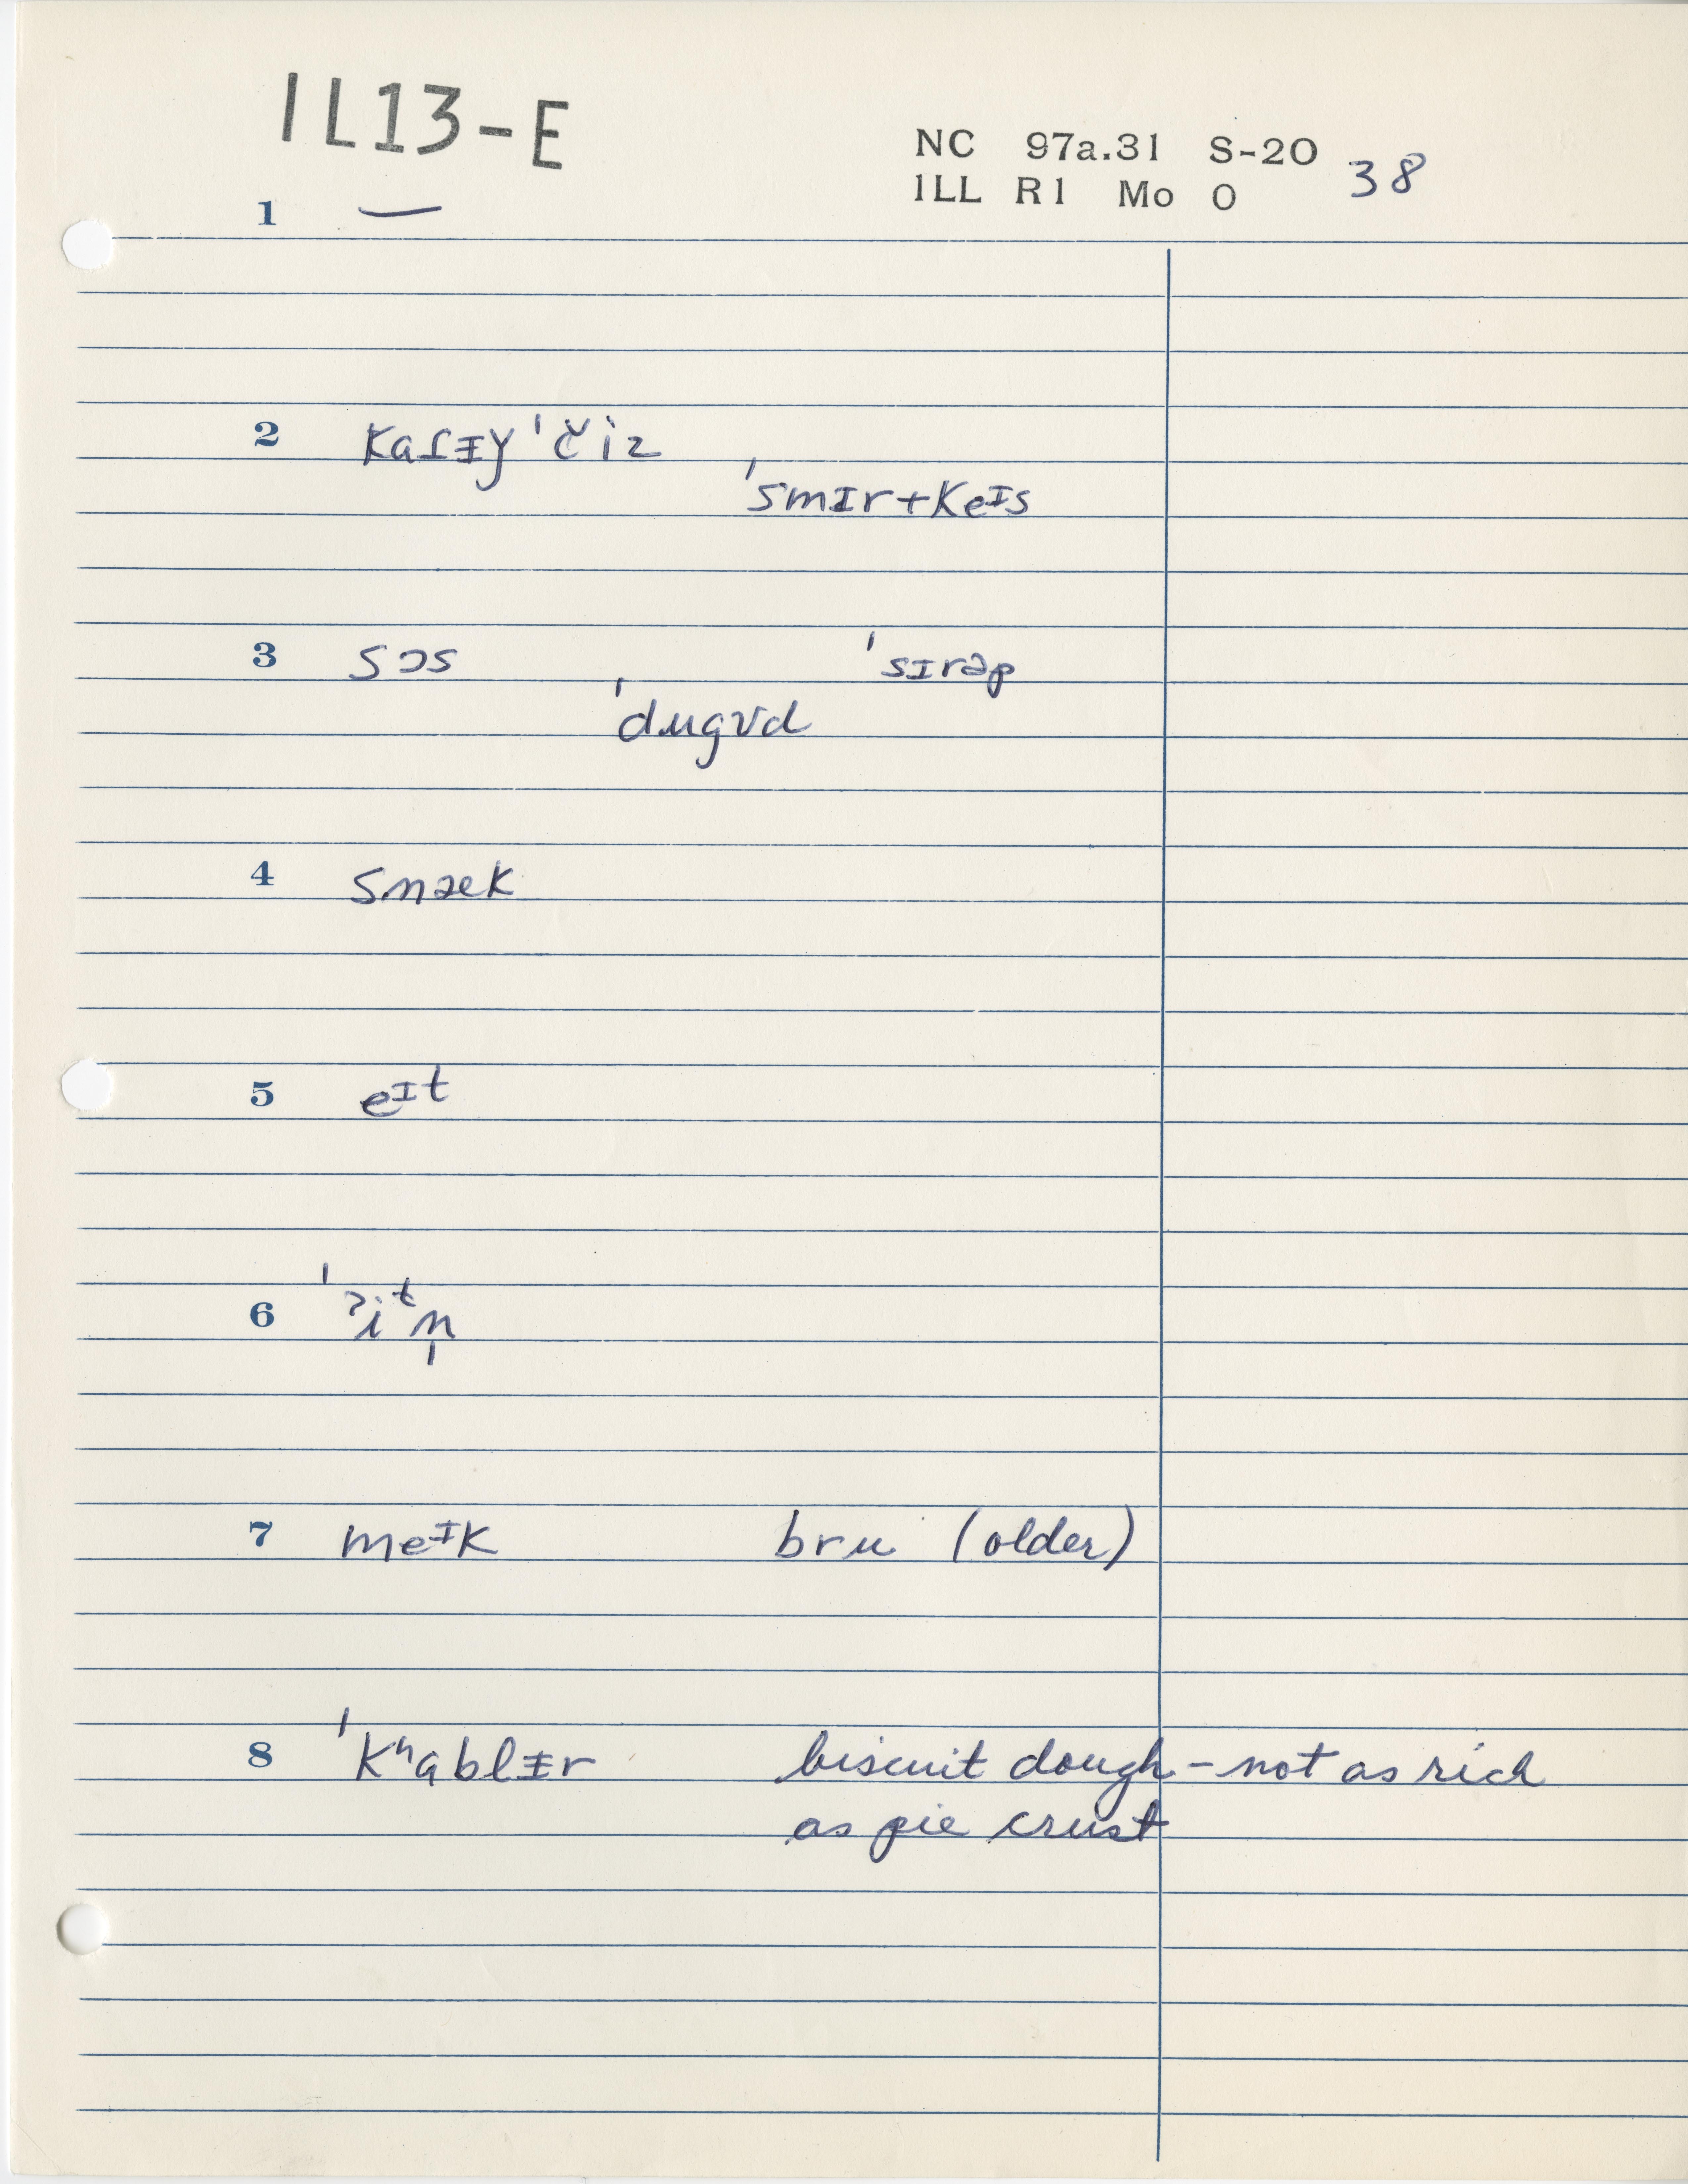 IL13-E
NC 97a.31 S-20 38
ILL R1 Mo O
1 —
2 kaɾɨy ˈčiz
ˈsmɪr+keᶦs
3 sɔs ˈsɪrəp
ˈdugʊd
4 snæk
5 eᶦt
6 ˈʔiᵗn̩
7 meᶦk bru (older)
8 ˈkʰablɨr biscuit dough - not as rich
as pie crust